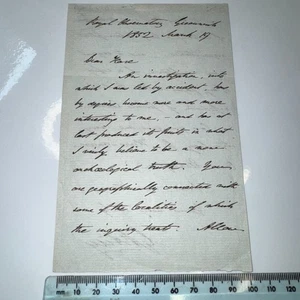 Royal Observatory Greenwich
1852 March 17
Dear Hare
An investigation into
which I was led by accident has
by degrees become more and more
interesting to me, – and has at
last produced its fruits in what
I verily believe to be a more
archæological truth. You
are geographically connected with
some of the localities of which
the inquiry treats. Allow
mm 10 20 30 40 50 60 70 80 90 100 110 120